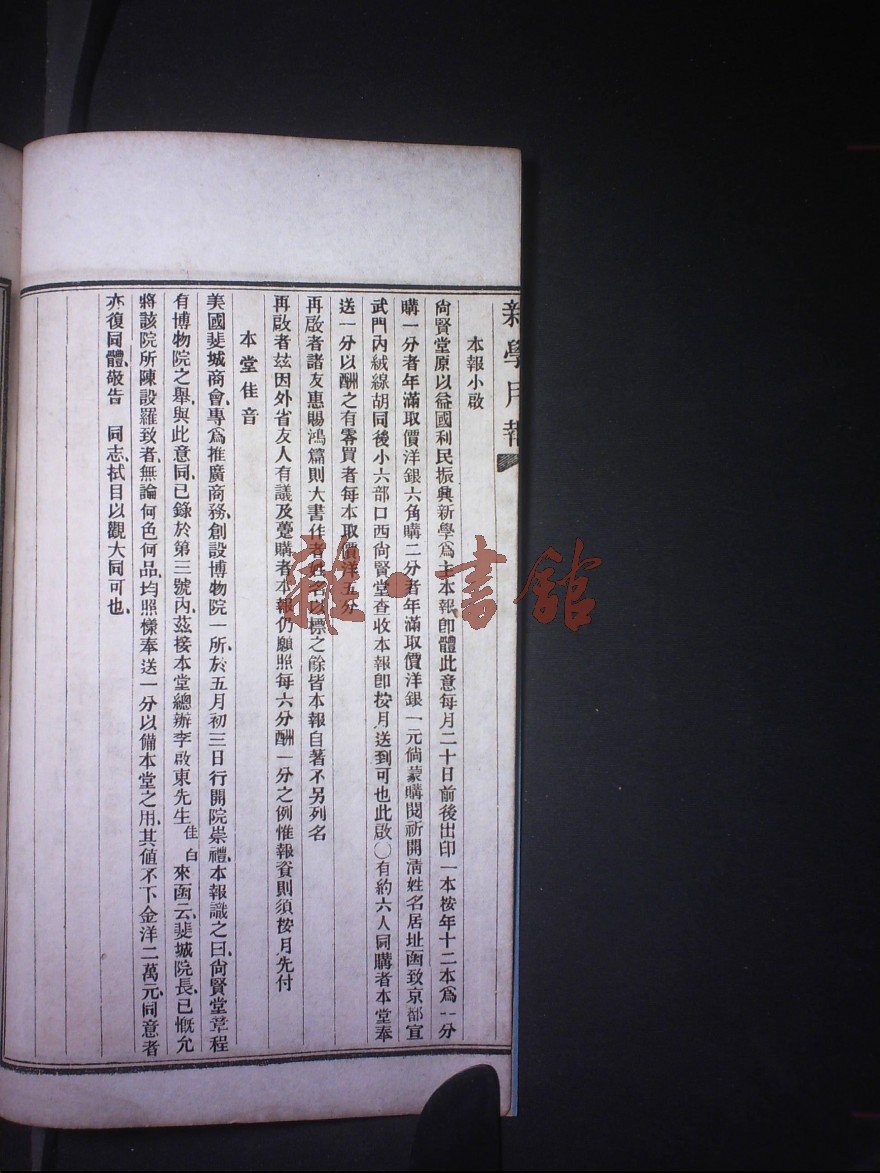 新學月報
本報小啟
尙賢堂原以益國利民振興新學爲主本報卽體此意每月二十日前後出印一本按年十二本爲一分
購一分者年滿取價洋銀六角購二分者年滿取價洋銀一元倘蒙購閱祈開淸姓名居址函致京都宣
武門內絨線胡同後小六部口西尙賢堂查收本報卽按月送到可也此啟〇有約六人同購者本堂奉
送一分以酬之有零買者每本取價洋五分
再啟者諸友惠賜鴻篇則大書作者姓名以標之餘皆本報自著不另列名
再啟者玆因外省友人有議及躉購者本報仍願照每六分酬一分之例惟報資則須按月先付
本堂佳音
美國斐城商會、專爲推廣商務、創設博物院一所、於五月初三日行開院崇禮、本報識之曰、尙賢堂章程
有博物院之舉、與此意同、已錄於第三號內、茲接本堂總辦李啟東先生佳白來函云、斐城院長、已慨允
將該院所陳設羅致者、無論何色何品、均照樣奉送一分以備本堂之用、其値不下金洋二萬元、同意者
亦復同體、敬告 同志、拭目以觀大同可也、
雜·書館